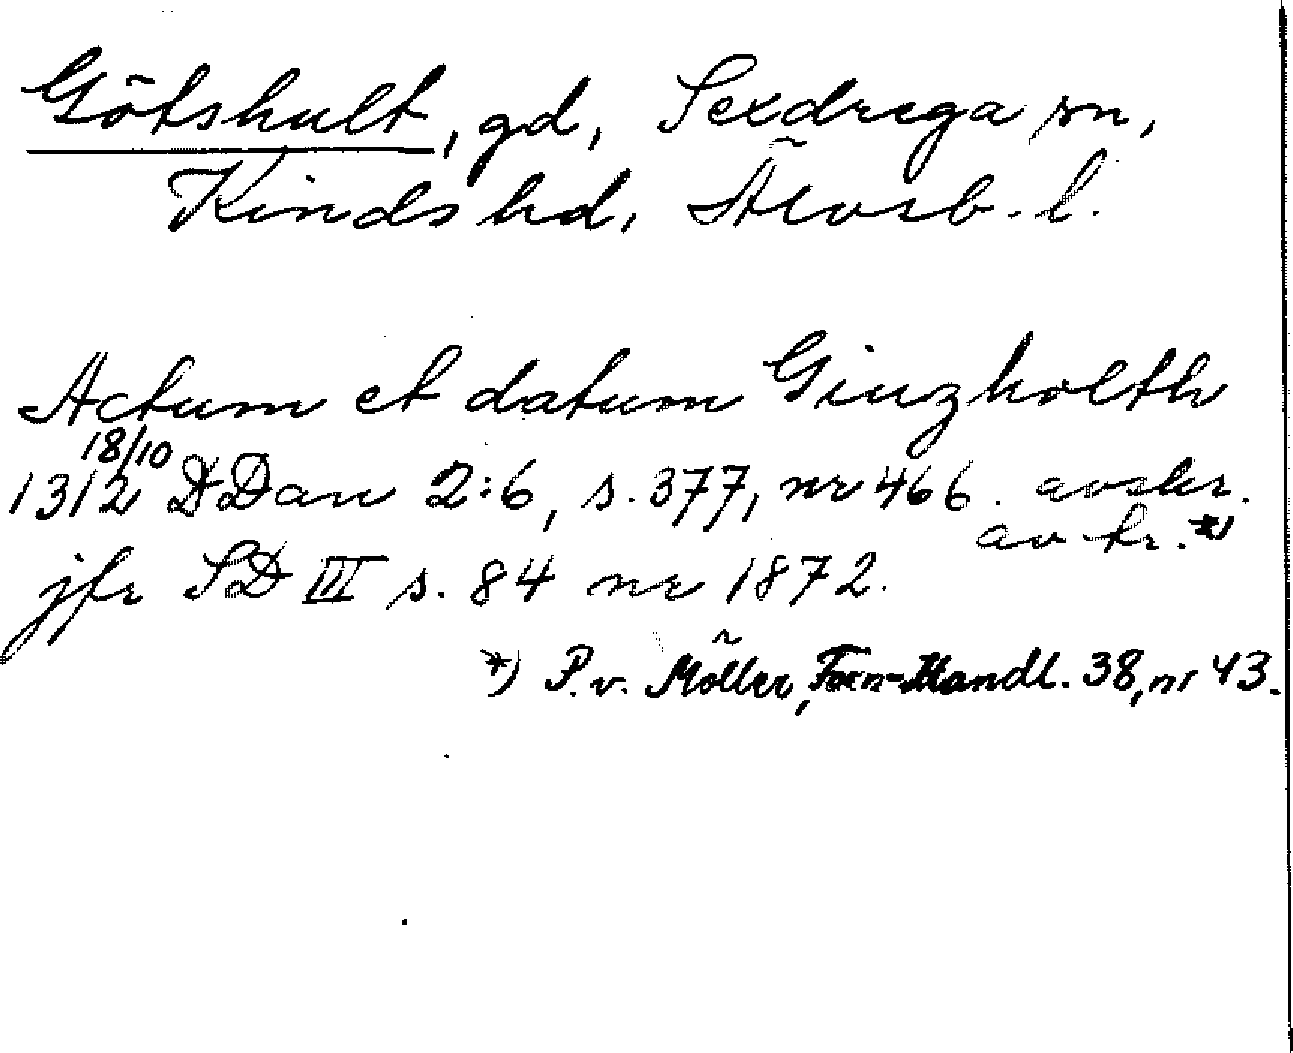 Götshult, gd, Sexdrega sn,
Kinds hd, Älvsb. l.
Actum et datum Giuzholth
1312 18/10 DDan 2:6, s. 377, nr 466. avskr.
av tr. *)
jfr SD III s. 84 nr 1872.
*) P. v. Möller, Forn-Handl. 38, nr 43.